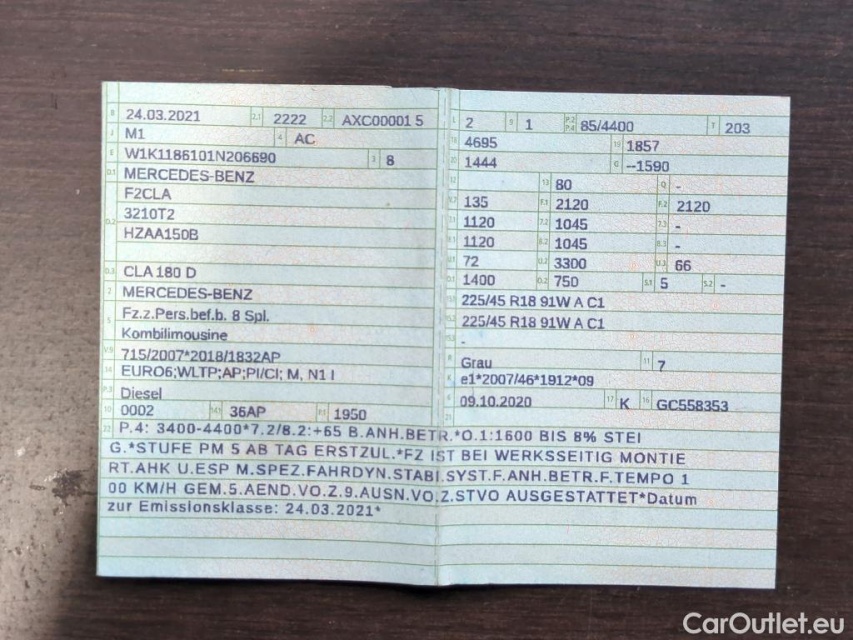 B 24.03.2021 2.1 2222 2.2 AXC00001 5
J M1 4 AC
E W1K1186101N206690 3 8
D.1 MERCEDES-BENZ
F2CLA
D.2 3210T2
HZAA150B
D.3 CLA 180 D
2 MERCEDES-BENZ
5 Fz.z.Pers.bef.b. 8 Spl.
Kombilimousine
V.9 715/2007*2018/1832AP
14 EURO6;WLTP;AP;PI/CI; M, N1 I
P.3 Diesel
10 0002 14.1 36AP P.1 1950
L 2 9 1 P.2 P.4 85/4400 T 203
18 4695 19 1857
20 1444 G --1590
12 13 80 Q -
V.7 135 F.1 2120 F.2 2120
7.1 1120 7.2 1045 7.3 -
8.1 1120 8.2 1045 8.3 -
U.1 72 U.2 3300 U.3 66
O.1 1400 O.2 750 S.1 5 S.2 -
15.1 225/45 R18 91W A C1
15.2 225/45 R18 91W A C1
15.3 -
R Grau 11 7
K e1*2007/46*1912*09
6 09.10.2020 17 K 16 GC558353
21
22 P.4: 3400-4400*7.2/8.2:+65 B.ANH.BETR.*O.1:1600 BIS 8% STEI
G.*STUFE PM 5 AB TAG ERSTZUL.*FZ IST BEI WERKSSEITIG MONTIE
RT.AHK U.ESP M.SPEZ.FAHRDYN.STABI.SYST.F.ANH.BETR.F.TEMPO 1
00 KM/H GEM.5.AEND.VO.Z.9.AUSN.VO.Z.STVO AUSGESTATTET*Datum
zur Emissionsklasse: 24.03.2021*
CarOutlet.eu